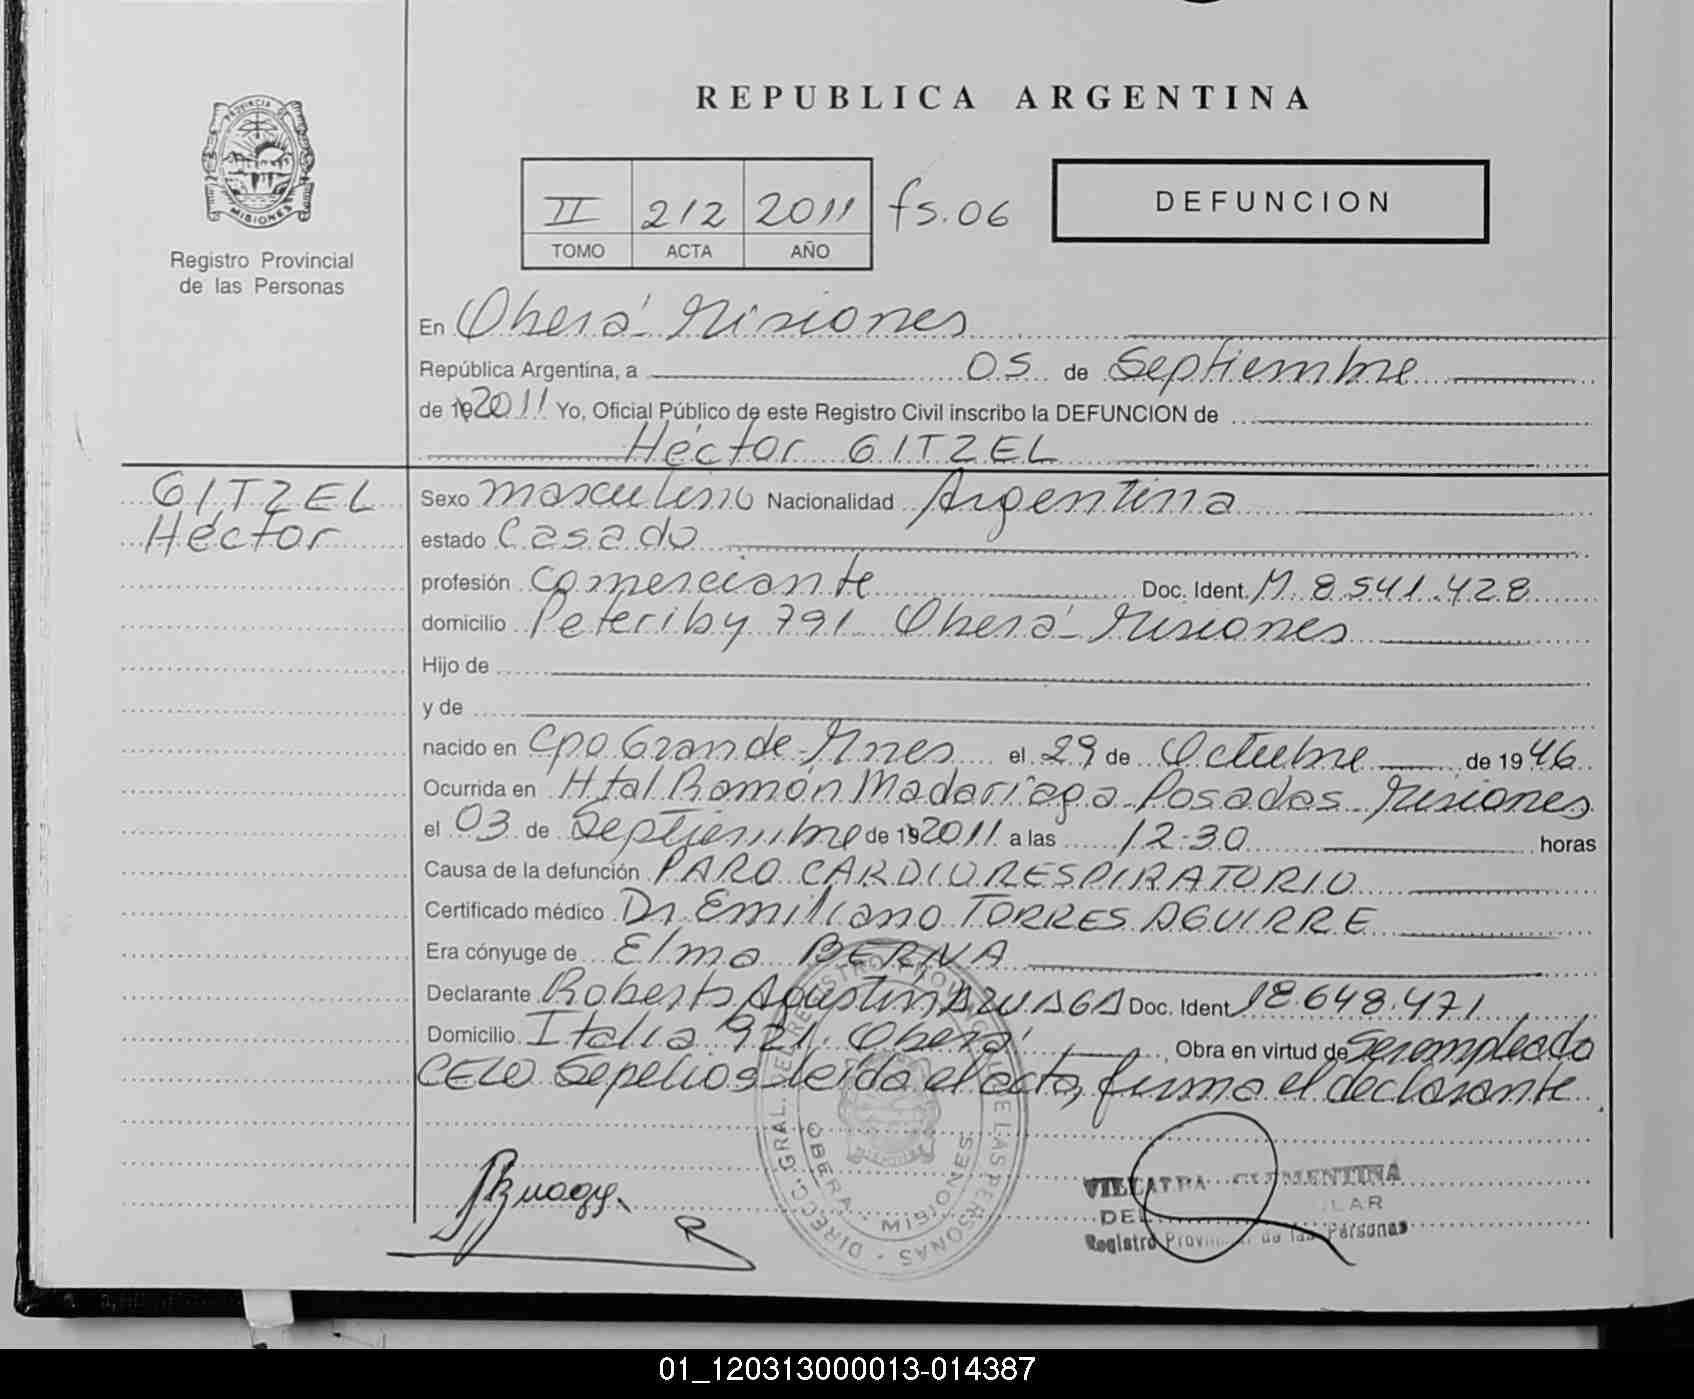 REPUBLICA ARGENTINA
II 212 2011 fs.06
TOMO ACTA AÑO
DEFUNCION
PROVINCIA DE
MISIONES
Registro Provincial
de las Personas
En Oberá Misiones
República Argentina, a 05 de Septiembre
de 19 2011 Yo, Oficial Público de este Registro Civil inscribo la DEFUNCION de
Héctor GITZEL
GITZEL
Héctor
Sexo masculino Nacionalidad Argentina
estado Casado
profesión Comerciante Doc. Ident. M. 8.541.428
domicilio Peteriby 791 Oberá - Misiones
Hijo de
y de
nacido en Cpo Grande - Mnes el 29 de Octubre de 1946
Ocurrida en Htal Ramón Madariaga - Posadas Misiones
el 03 de Septiembre de 19 2011 a las 12.30 horas
Causa de la defunción PARO CARDIORESPIRATORIO
Certificado médico Dr Emiliano TORRES AGUIRRE
Era cónyuge de Elma BERNA
Declarante Roberto Agustin AZUAGA Doc. Ident 18.648.471
Domicilio Italia 921 Oberá, Obra en virtud de Ser empleado
CELO Sepelios leída el acta, firma el declarante
DIRECC. GRAL. DEL REGISTRO PROVINCIAL DE LAS PERSONAS
OBERA - MISIONES
CLEMENTINA
Registro Provincial de las Personas
01_120313000013-014387